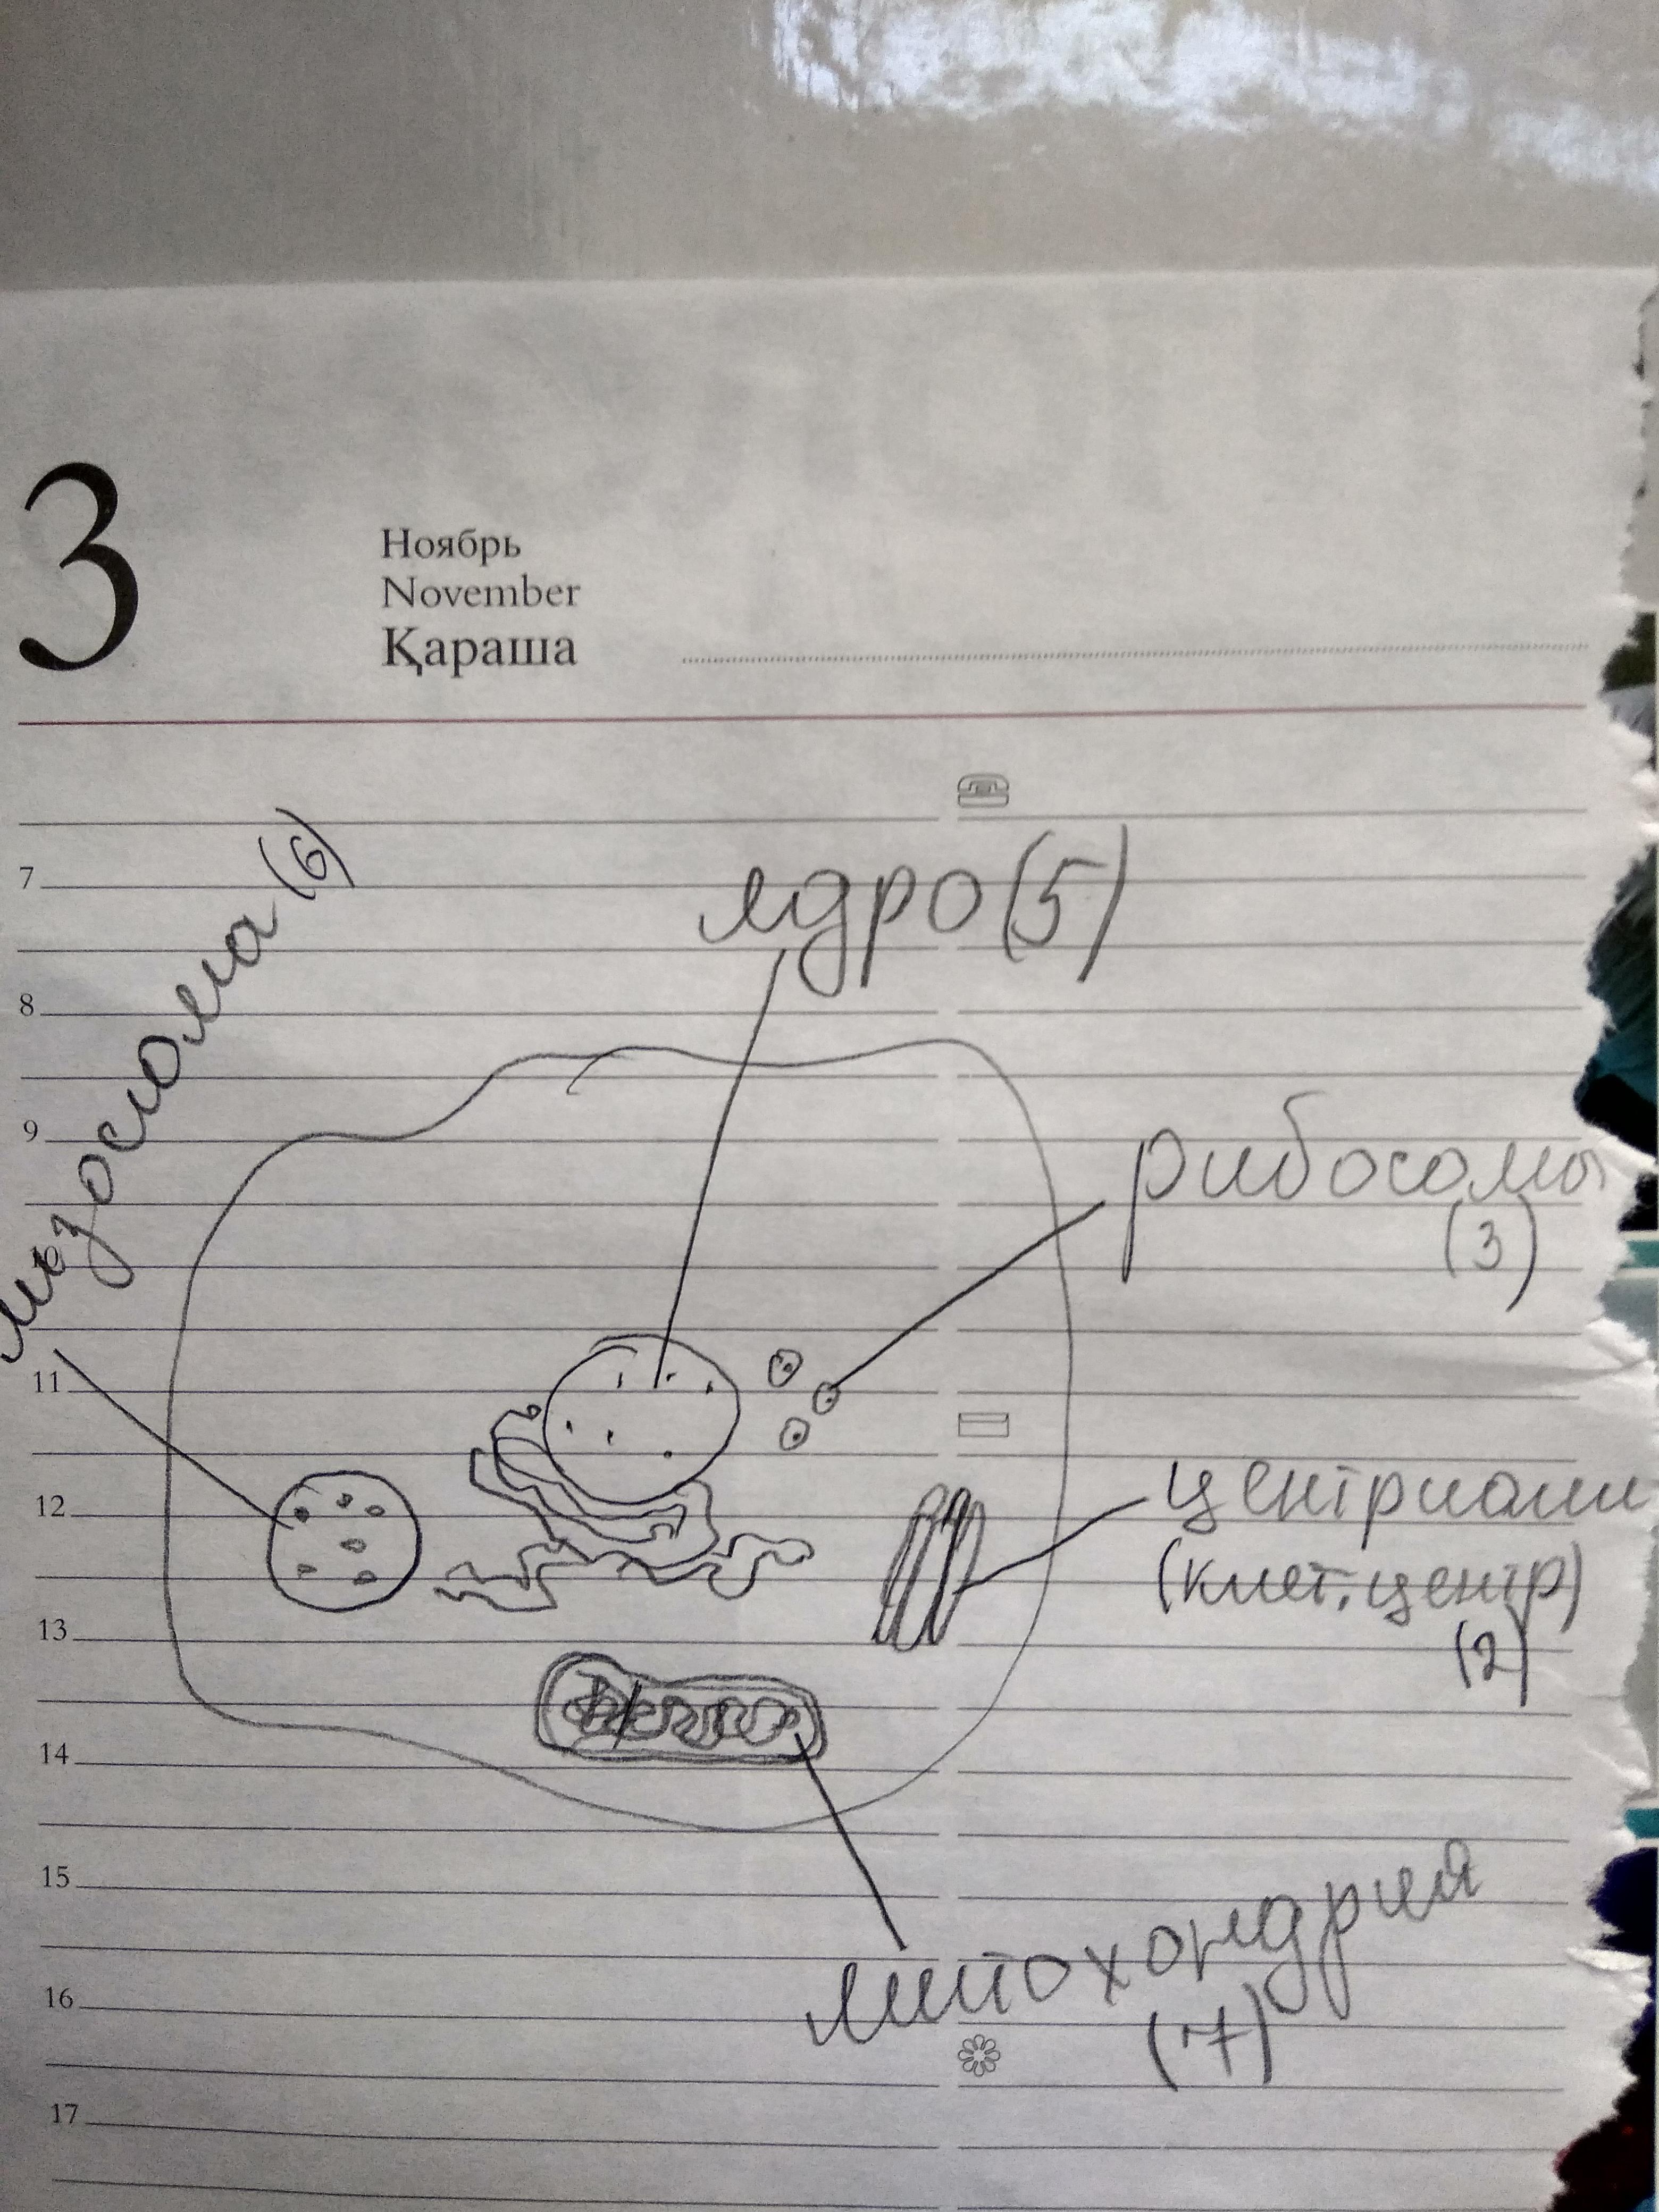 3
Ноябрь
November
Қараша
7
лизосома (6)
ядро (5)
8
9
рибосомы
(3)
10
11
12
центриоли
(клет. центр)
(2)
13
14
15
митохондрия
(7)
16
17